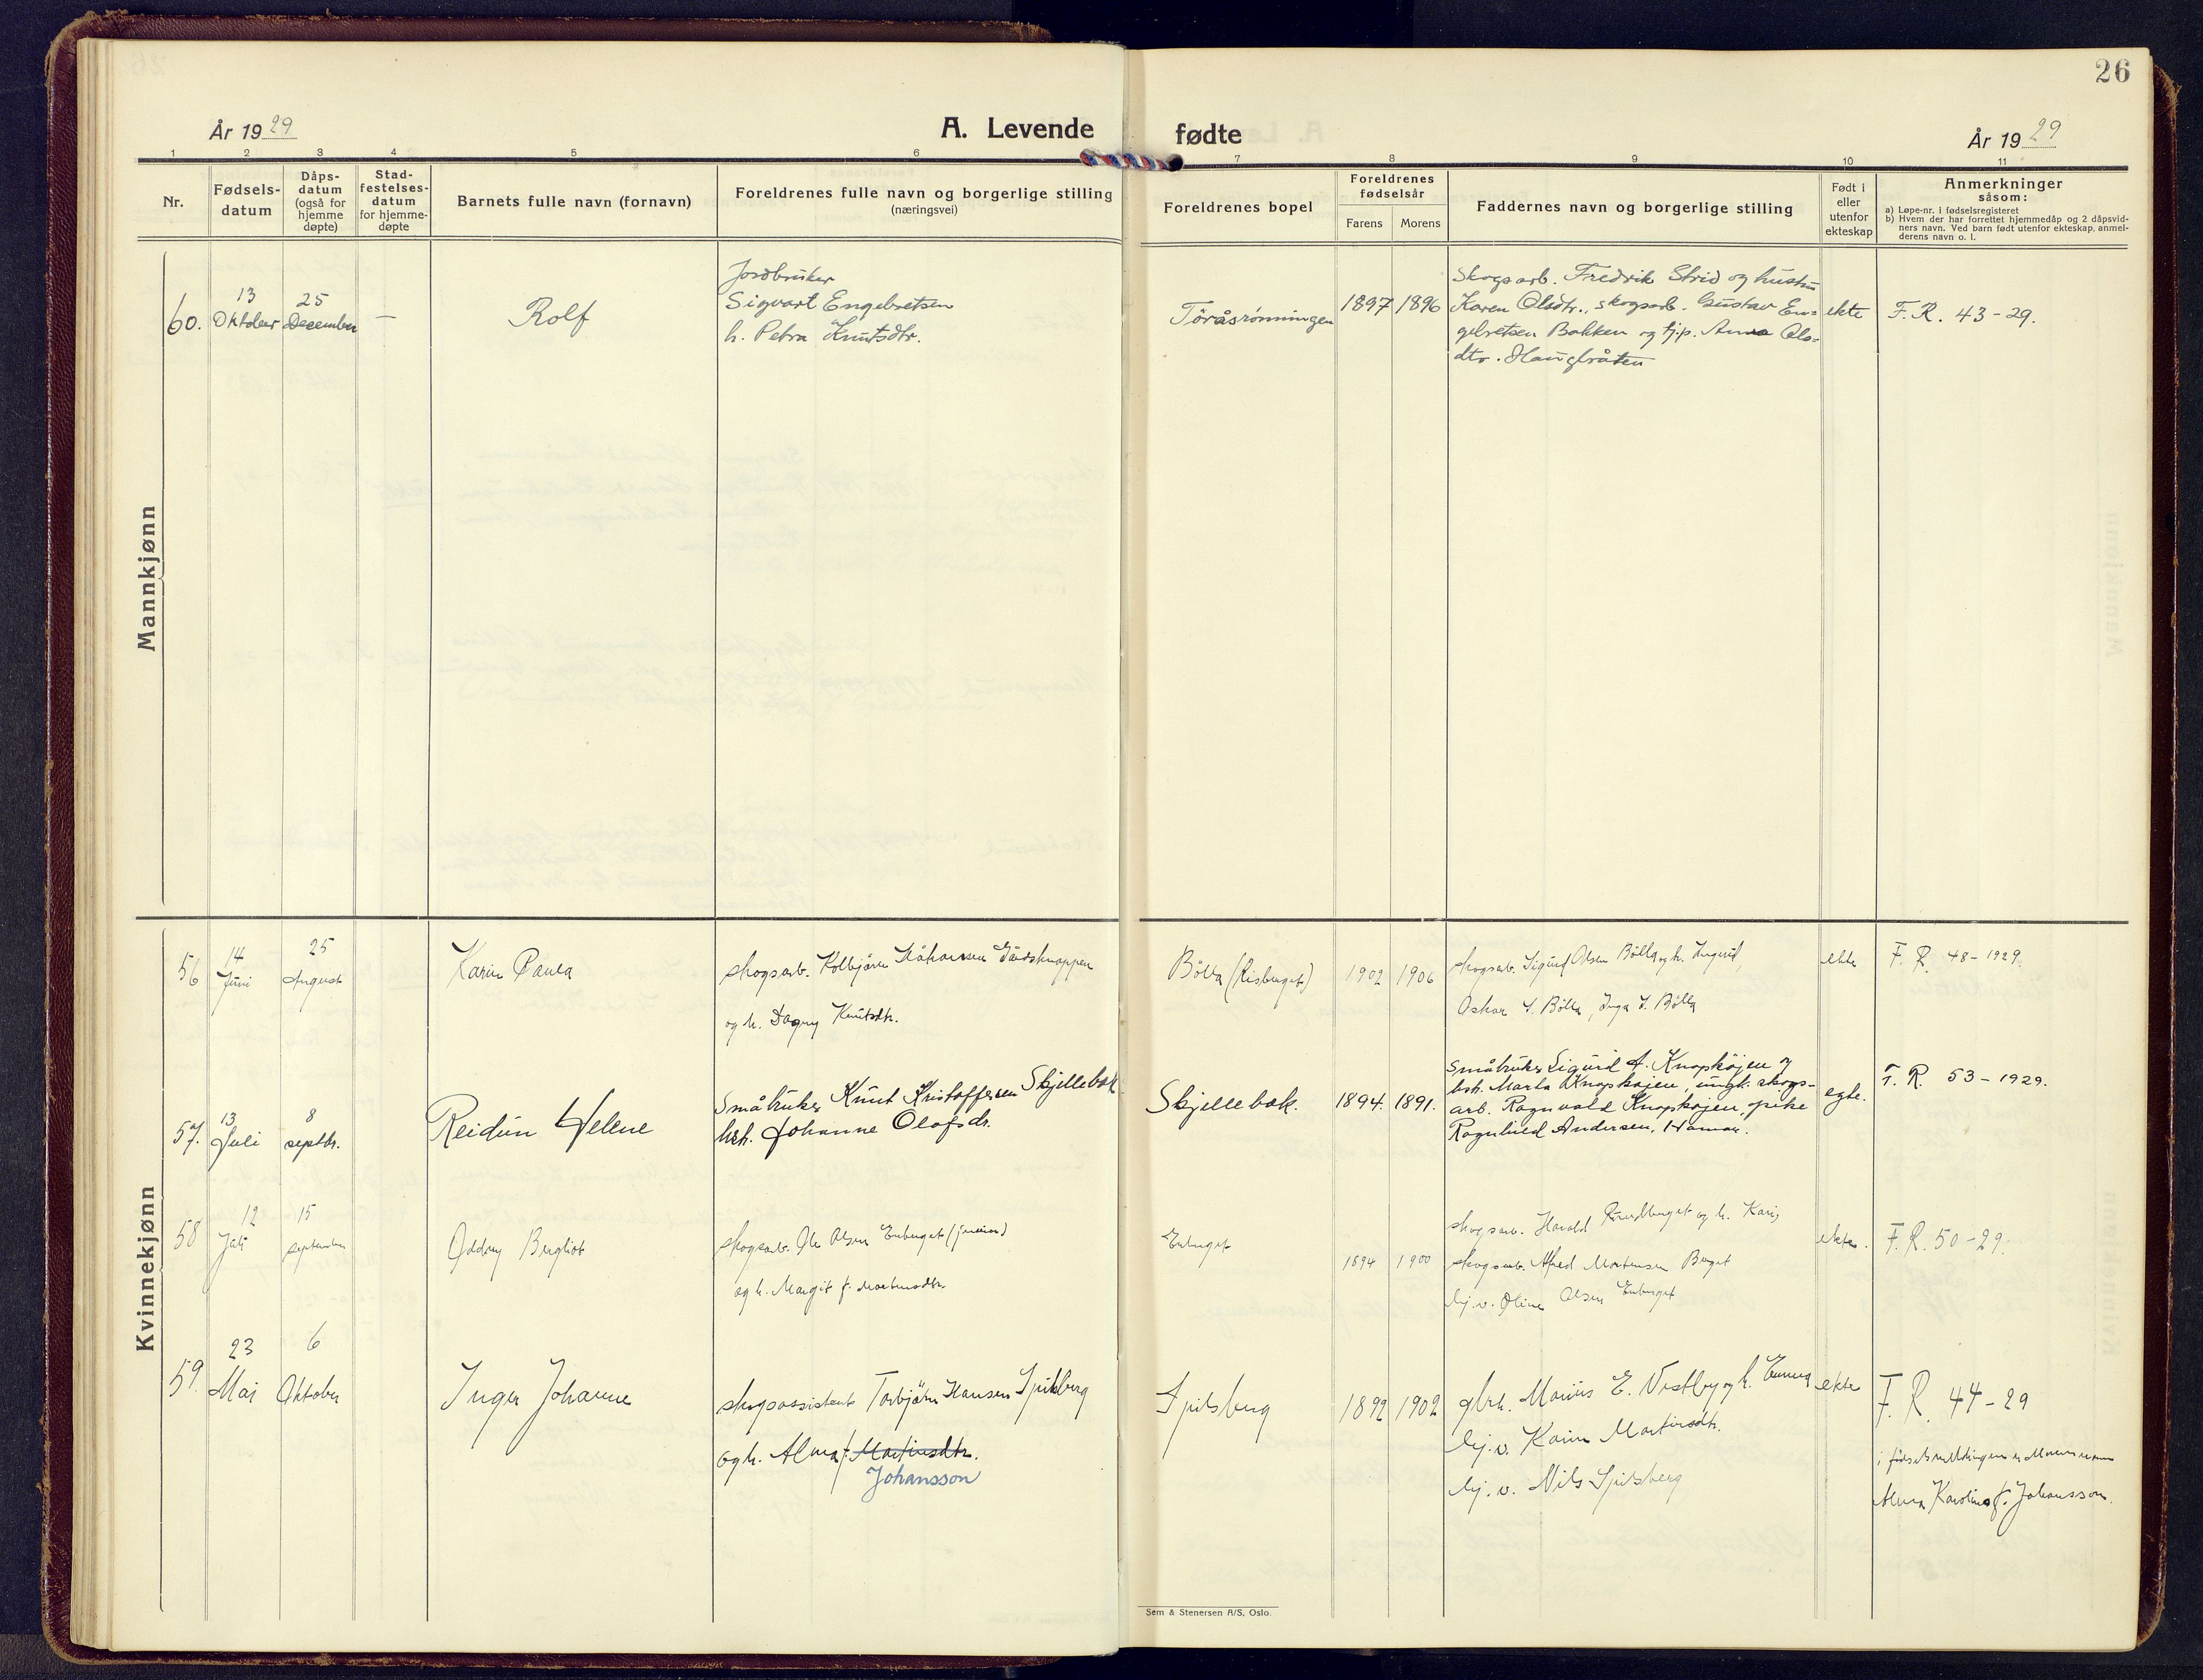 26
År 1929
A. Levende fødte
År 1929
1 2 3 4 5 6 7 8 9 10 11
Nr.
Fødsels-
datum
Dåps-
datum
(også for
hjemme
døpte)
Stad-
festelses-
datum
for hjemme-
døpte
Barnets fulle navn (fornavn)
Foreldrenes fulle navn og borgerlige stilling
(næringsvei)
Foreldrenes bopel
Foreldrenes
fødselsår
Farens Morens
Faddernes navn og borgerlige stilling
Født i
eller
utenfor
ekteskap
Anmerkninger
såsom:
a) Løpe-nr. i fødselsregisteret
b) Hvem der har forrettet hjemmedåp og 2 dåpsvid-
ners navn. Ved barn født utenfor ekteskap, anmel-
derens navn o. l.
Mannkjønn
60.
13
Oktober
25
December
—
Rolf
Jordbruker
Sigvart Engebretsen
h. Petra Knutsdtr.
Töråsrönningen
1897 1896
Skogsarb. Fredrik Strid og hustru
Karen Olsdtr., skogsarb. Gustav En=
gebretsen Bakken og tj.p. Anna Ols=
dtr. Haugbråten
ekte
F. R. 43-29.
Kvinnekjønn
56
14
Juni
25
August
Karin Paula
skogsarb. Kolbjörn Håkansen
og h. Dagny Knutsdtr.
Bölla (Risberget)
1902 1906
skogsarb. Sigurd Olsen Bölla og h. Ingrid,
Oskar S. Bölla, Inga S. Bölla
ekte
F. R. 48-1929.
57.
13
Juli
8
septbr.
Reidun Helene
Småbruker Knut Kristoffersen Skjellebæk
hsh. Johanne Olafsdr.
Skjellebæk.
1894. 1891.
Småbruker Sigurd A. Knapkøjen og
hsh. Marta Knapkøjen, ungk. skogs-
arb. Ragnvald Knapkøjen, pike
Ragnhild Andersen, Hamar.
egte.
F. R. 53-1929.
58
12
Juli
15
september
Oddny Bergliot
skogsarb. Ole Olsen Enberget (junior)
og h. Margit f. Mortensdtr.
Enberget
1894 1900
skogsarb. Harald Rundberget og h. Kari,
skogsarb. Alfred Mortensen Berget
lej. v. Oline Olsen Enberget
ekte.
F. R. 50-29.
59.
23
Mai
6
Oktober
Inger Johanne
skogsassistent Torbjörn Hansen Spitsberg
og h. Alma f. Martinsdtr.
Johansson
Spitsberg
1892 1902
gbrk. Marius E. Vestby og h. Emma
lej. v. Karin Martinsdtr.
lej. v. Nils Spitsberg
ekte
F. R. 44-29
i fødselsmeldingen er Morens navn
Alma Karolina f. Johansson.
Sem & Stenersen A/S, Oslo.